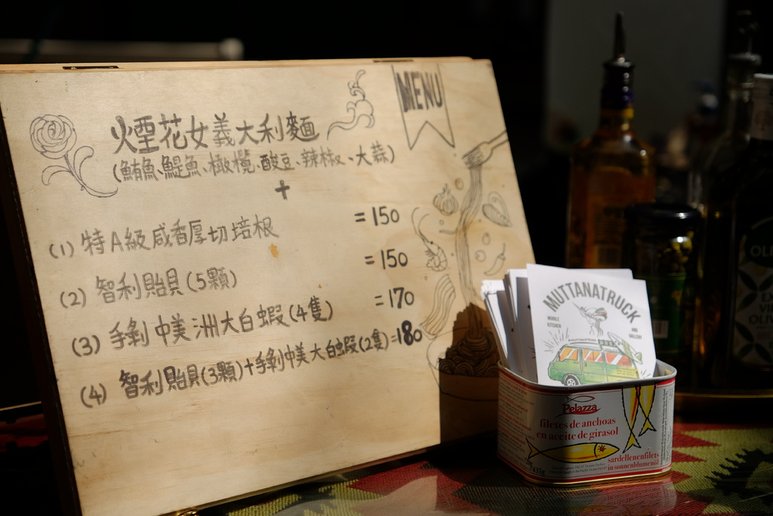 MENU
煙花女義大利麵
(鮪魚、鯷魚、橄欖、酸豆、辣椒、大蒜)
+
(1) 特A級咸香厚切培根 =150
(2) 智利貽貝(5顆) =150
(3) 手剝中美洲大白蝦(4隻) =170
(4) 智利貽貝(3顆)+手剝中美大白蝦(2隻)=180
MUTTANATRUCK
MOBILE KITCHEN
Pelazza
filetes de anchoas
en aceite de girasol
sardellenfilets
in sonnenblumenöl